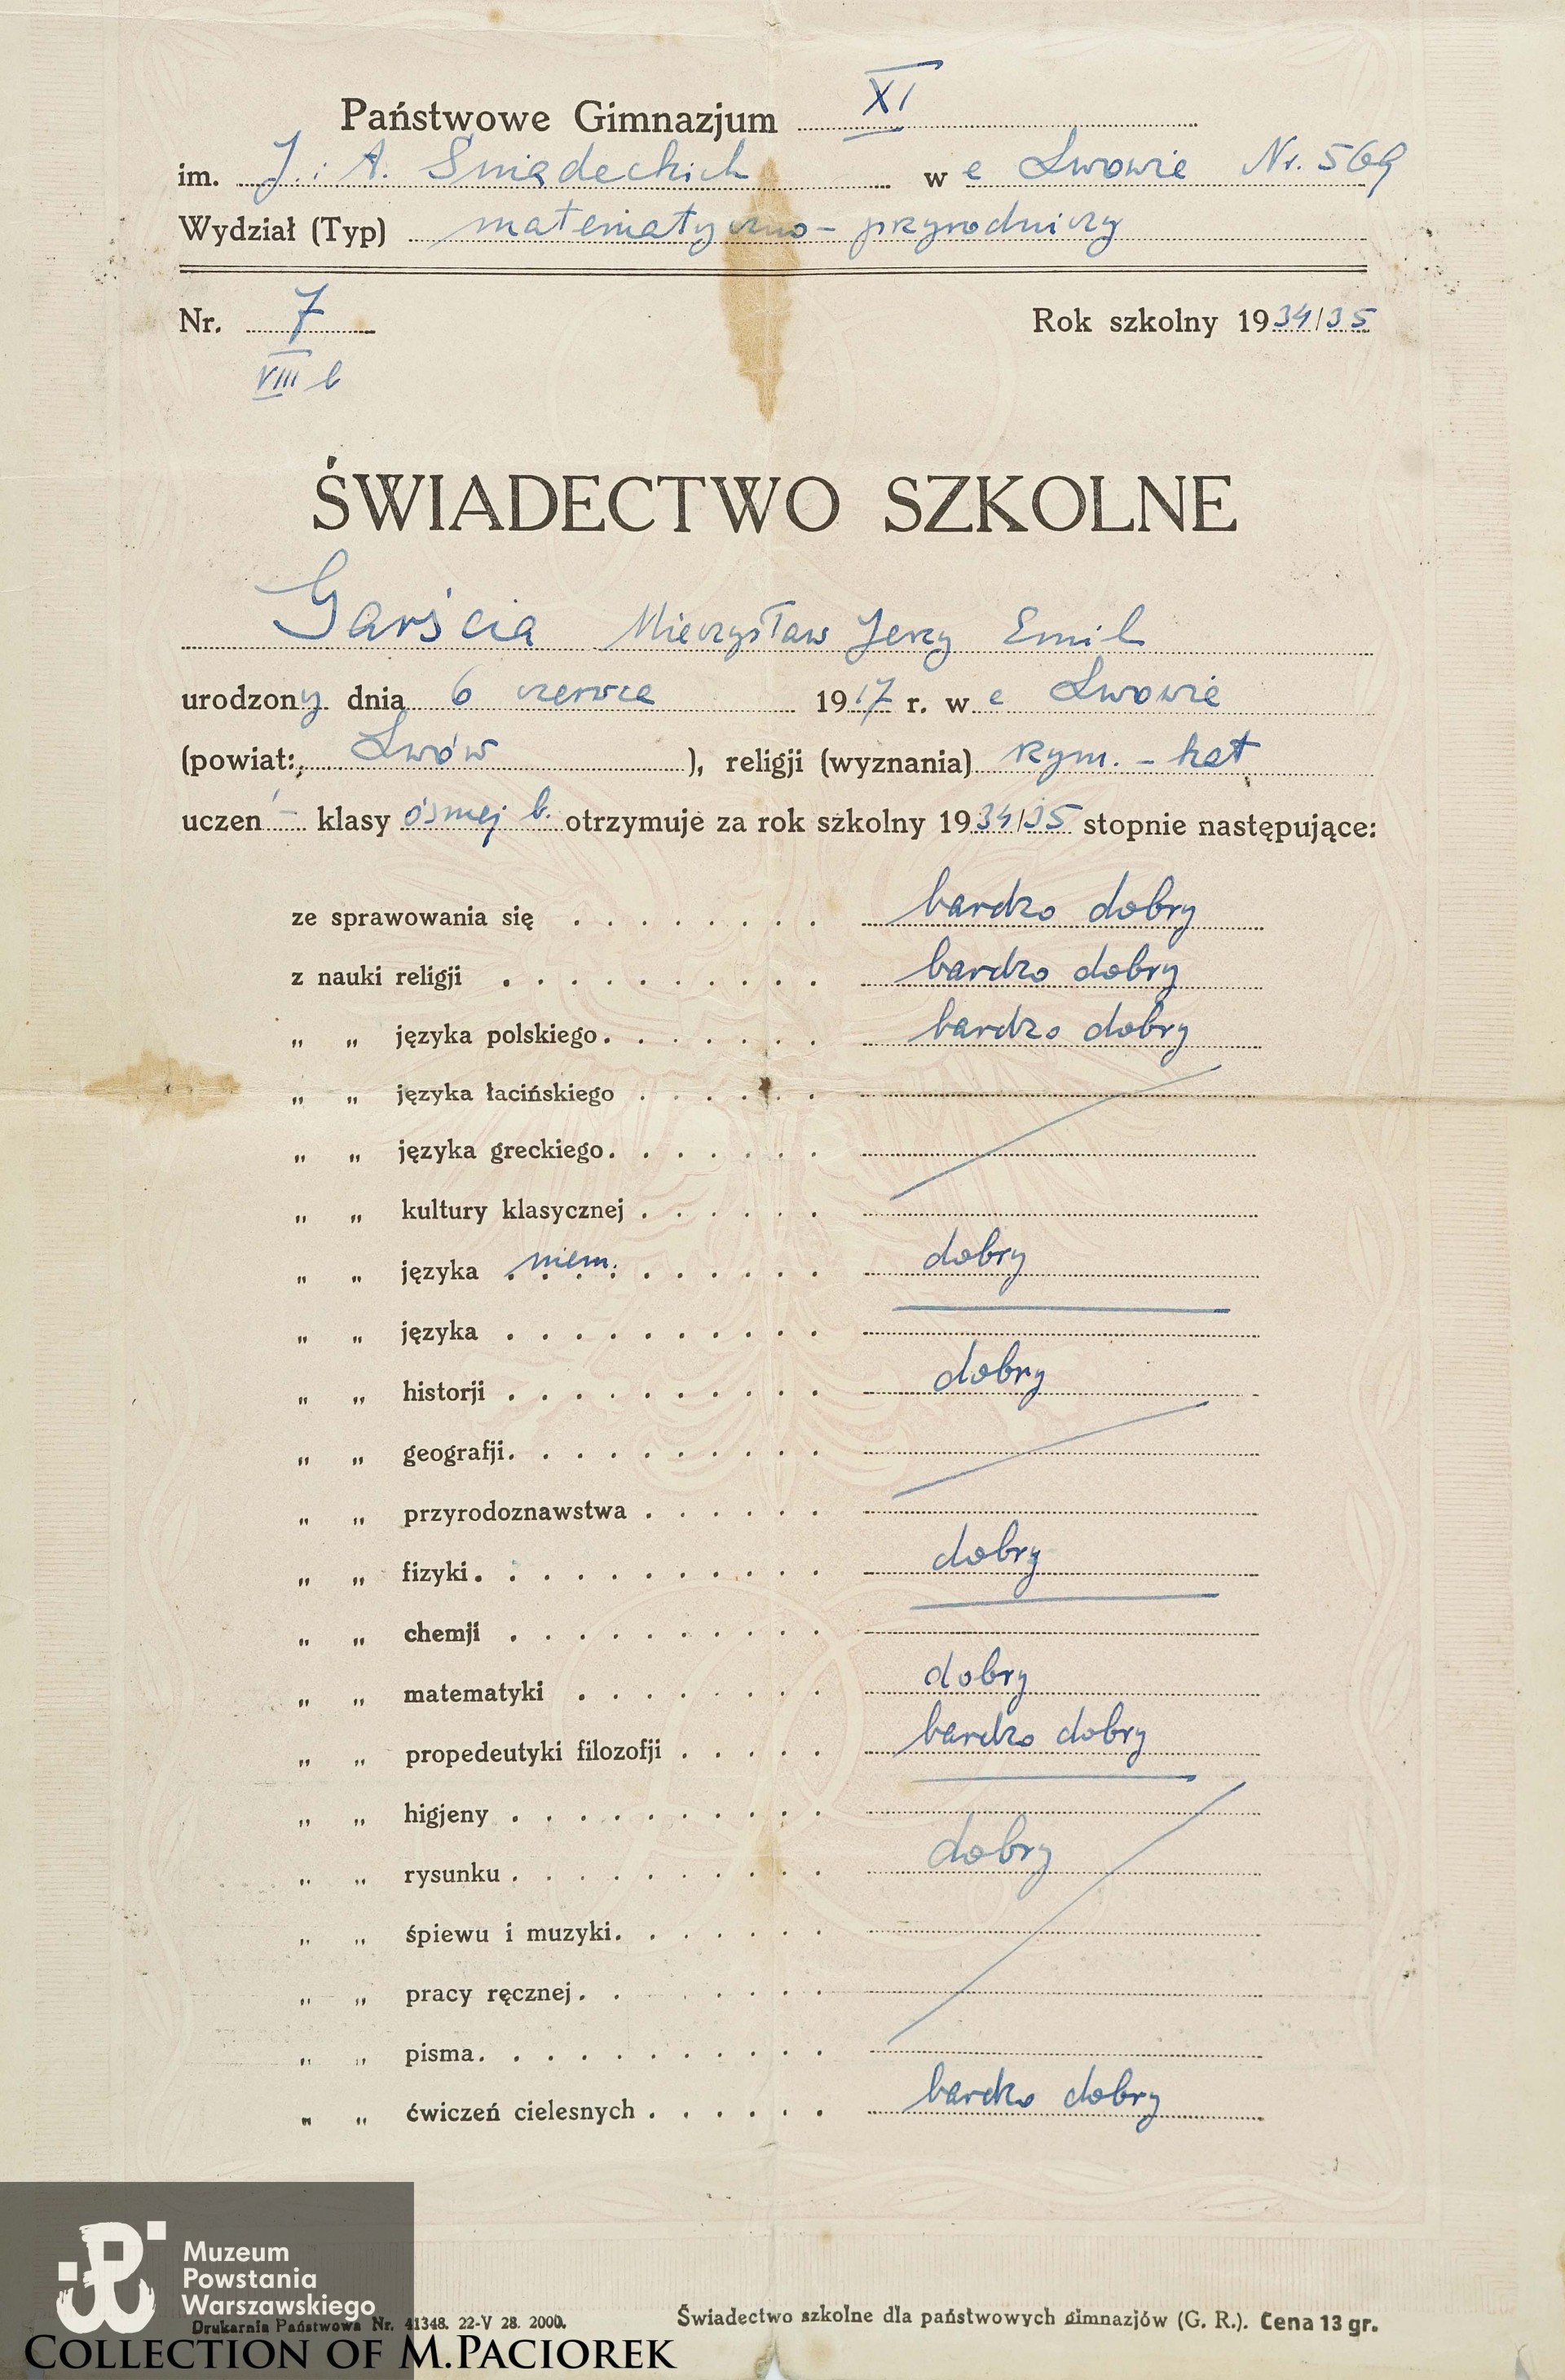 Państwowe Gimnazjum XI
im. J. i A. Śniadeckich w e Lwowie Nr. 569
Wydział (Typ) matematyczno-przyrodniczy
Nr. 7 Rok szkolny 1934/35
VIII b
ŚWIADECTWO SZKOLNE
Garścia Mieczysław Jerzy Emil
urodzony dnia 6 czerwca 1917 r. w e Lwowie
(powiat: Lwów ), religji (wyznania) rzym. - kat
uczeń - klasy ósmej b. otrzymuje za rok szkolny 1934/35 stopnie następujące:
ze sprawowania się . . . . . . . . bardzo dobry
z nauki religji . . . . . . . . . . bardzo dobry
„ „ języka polskiego . . . . . . . bardzo dobry
„ „ języka łacińskiego . . . . . .
„ „ języka greckiego . . . . . . .
„ „ kultury klasycznej . . . . . .
„ „ języka niem. . . . . . . dobry
„ „ języka . . . . . . . . . .
„ „ historji . . . . . . . . . . dobry
„ „ geografji . . . . . . . . . .
„ „ przyrodoznawstwa . . . . . .
„ „ fizyki . . . . . . . . . . . dobry
„ „ chemji . . . . . . . . . .
„ „ matematyki . . . . . . . . dobry
„ „ propedeutyki filozofji . . . . . bardzo dobry
„ „ higjeny . . . . . . . . . .
„ „ rysunku . . . . . . . . . . dobry
„ „ śpiewu i muzyki . . . . . . .
„ „ pracy ręcznej . . . . . . .
„ „ pisma . . . . . . . . . . .
„ „ ćwiczeń cielesnych . . . . . . bardzo dobry
Muzeum
Powstania
Warszawskiego
Drukarnia Państwowa Nr. 41348. 22-V 28. 2000. Świadectwo szkolne dla państwowych gimnazjów (G. R.). Cena 13 gr.
COLLECTION OF M.PACIOREK